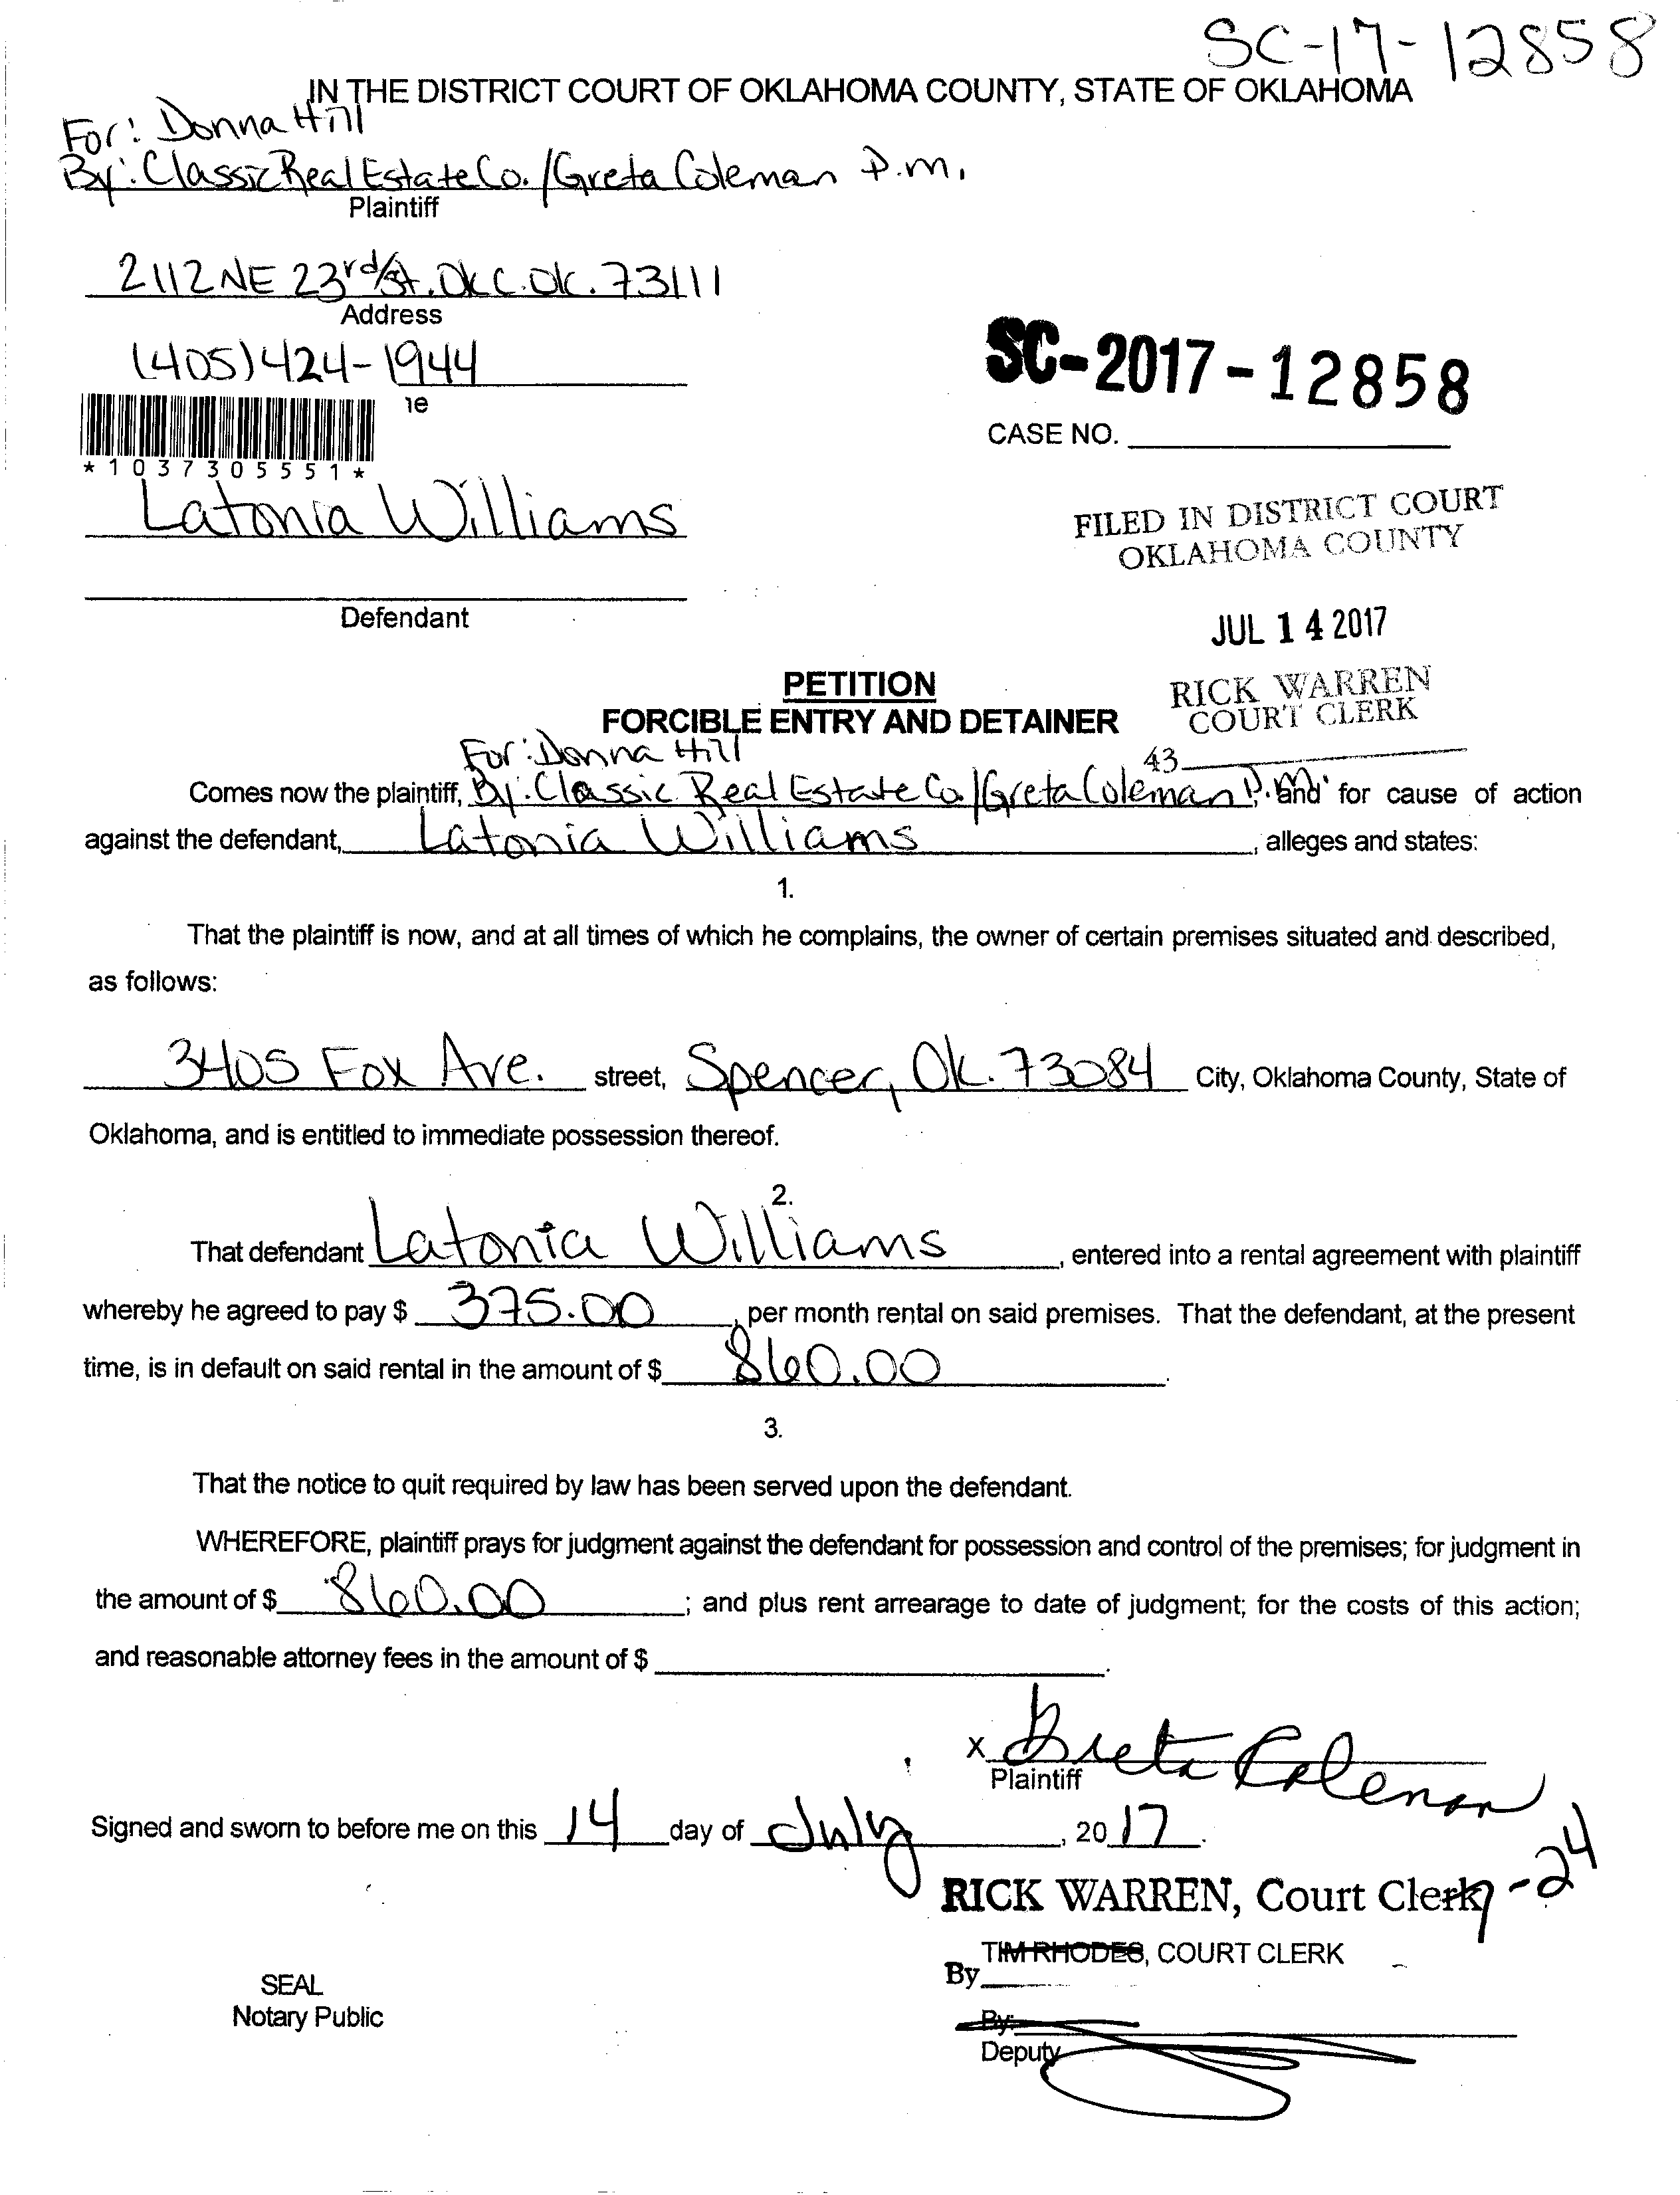 SC-17-12858
IN THE DISTRICT COURT OF OKLAHOMA COUNTY, STATE OF OKLAHOMA
For: Donna Hill
By: Classic Real Estate Co. /Greta Coleman P.M.
Plaintiff
2112 NE 23rd/St. OkC. Ok. 73111
Address
(405) 424-1944
ne
*1037305551*
SC-2017-12858
CASE NO.
Latonia Williams
FILED IN DISTRICT COURT
OKLAHOMA COUNTY
Defendant
JUL 14 2017
PETITION
RICK WARREN
FORCIBLE ENTRY AND DETAINER
COURT CLERK
For: Donna Hill
43
Comes now the plaintiff, By: Classic Real Estate Co. /Greta Coleman P.M. and for cause of action
against the defendant, Latonia Williams, alleges and states:
1.
That the plaintiff is now, and at all times of which he complains, the owner of certain premises situated and described,
as follows:
3405 Fox Ave. street, Spencer, Ok. 73084 City, Oklahoma County, State of
Oklahoma, and is entitled to immediate possession thereof.
2.
That defendant Latonia Williams, entered into a rental agreement with plaintiff
whereby he agreed to pay $ 375.00, per month rental on said premises. That the defendant, at the present
time, is in default on said rental in the amount of $ 860.00.
3.
That the notice to quit required by law has been served upon the defendant.
WHEREFORE, plaintiff prays for judgment against the defendant for possession and control of the premises; for judgment in
the amount of $ 860.00; and plus rent arrearage to date of judgment; for the costs of this action;
and reasonable attorney fees in the amount of $ .
X Greta Coleman
Plaintiff
Signed and sworn to before me on this 14 day of July, 2017.
RICK WARREN, Court Clerk
7-24
TIM RHODES, COURT CLERK
By
SEAL
Notary Public
By:
Deputy